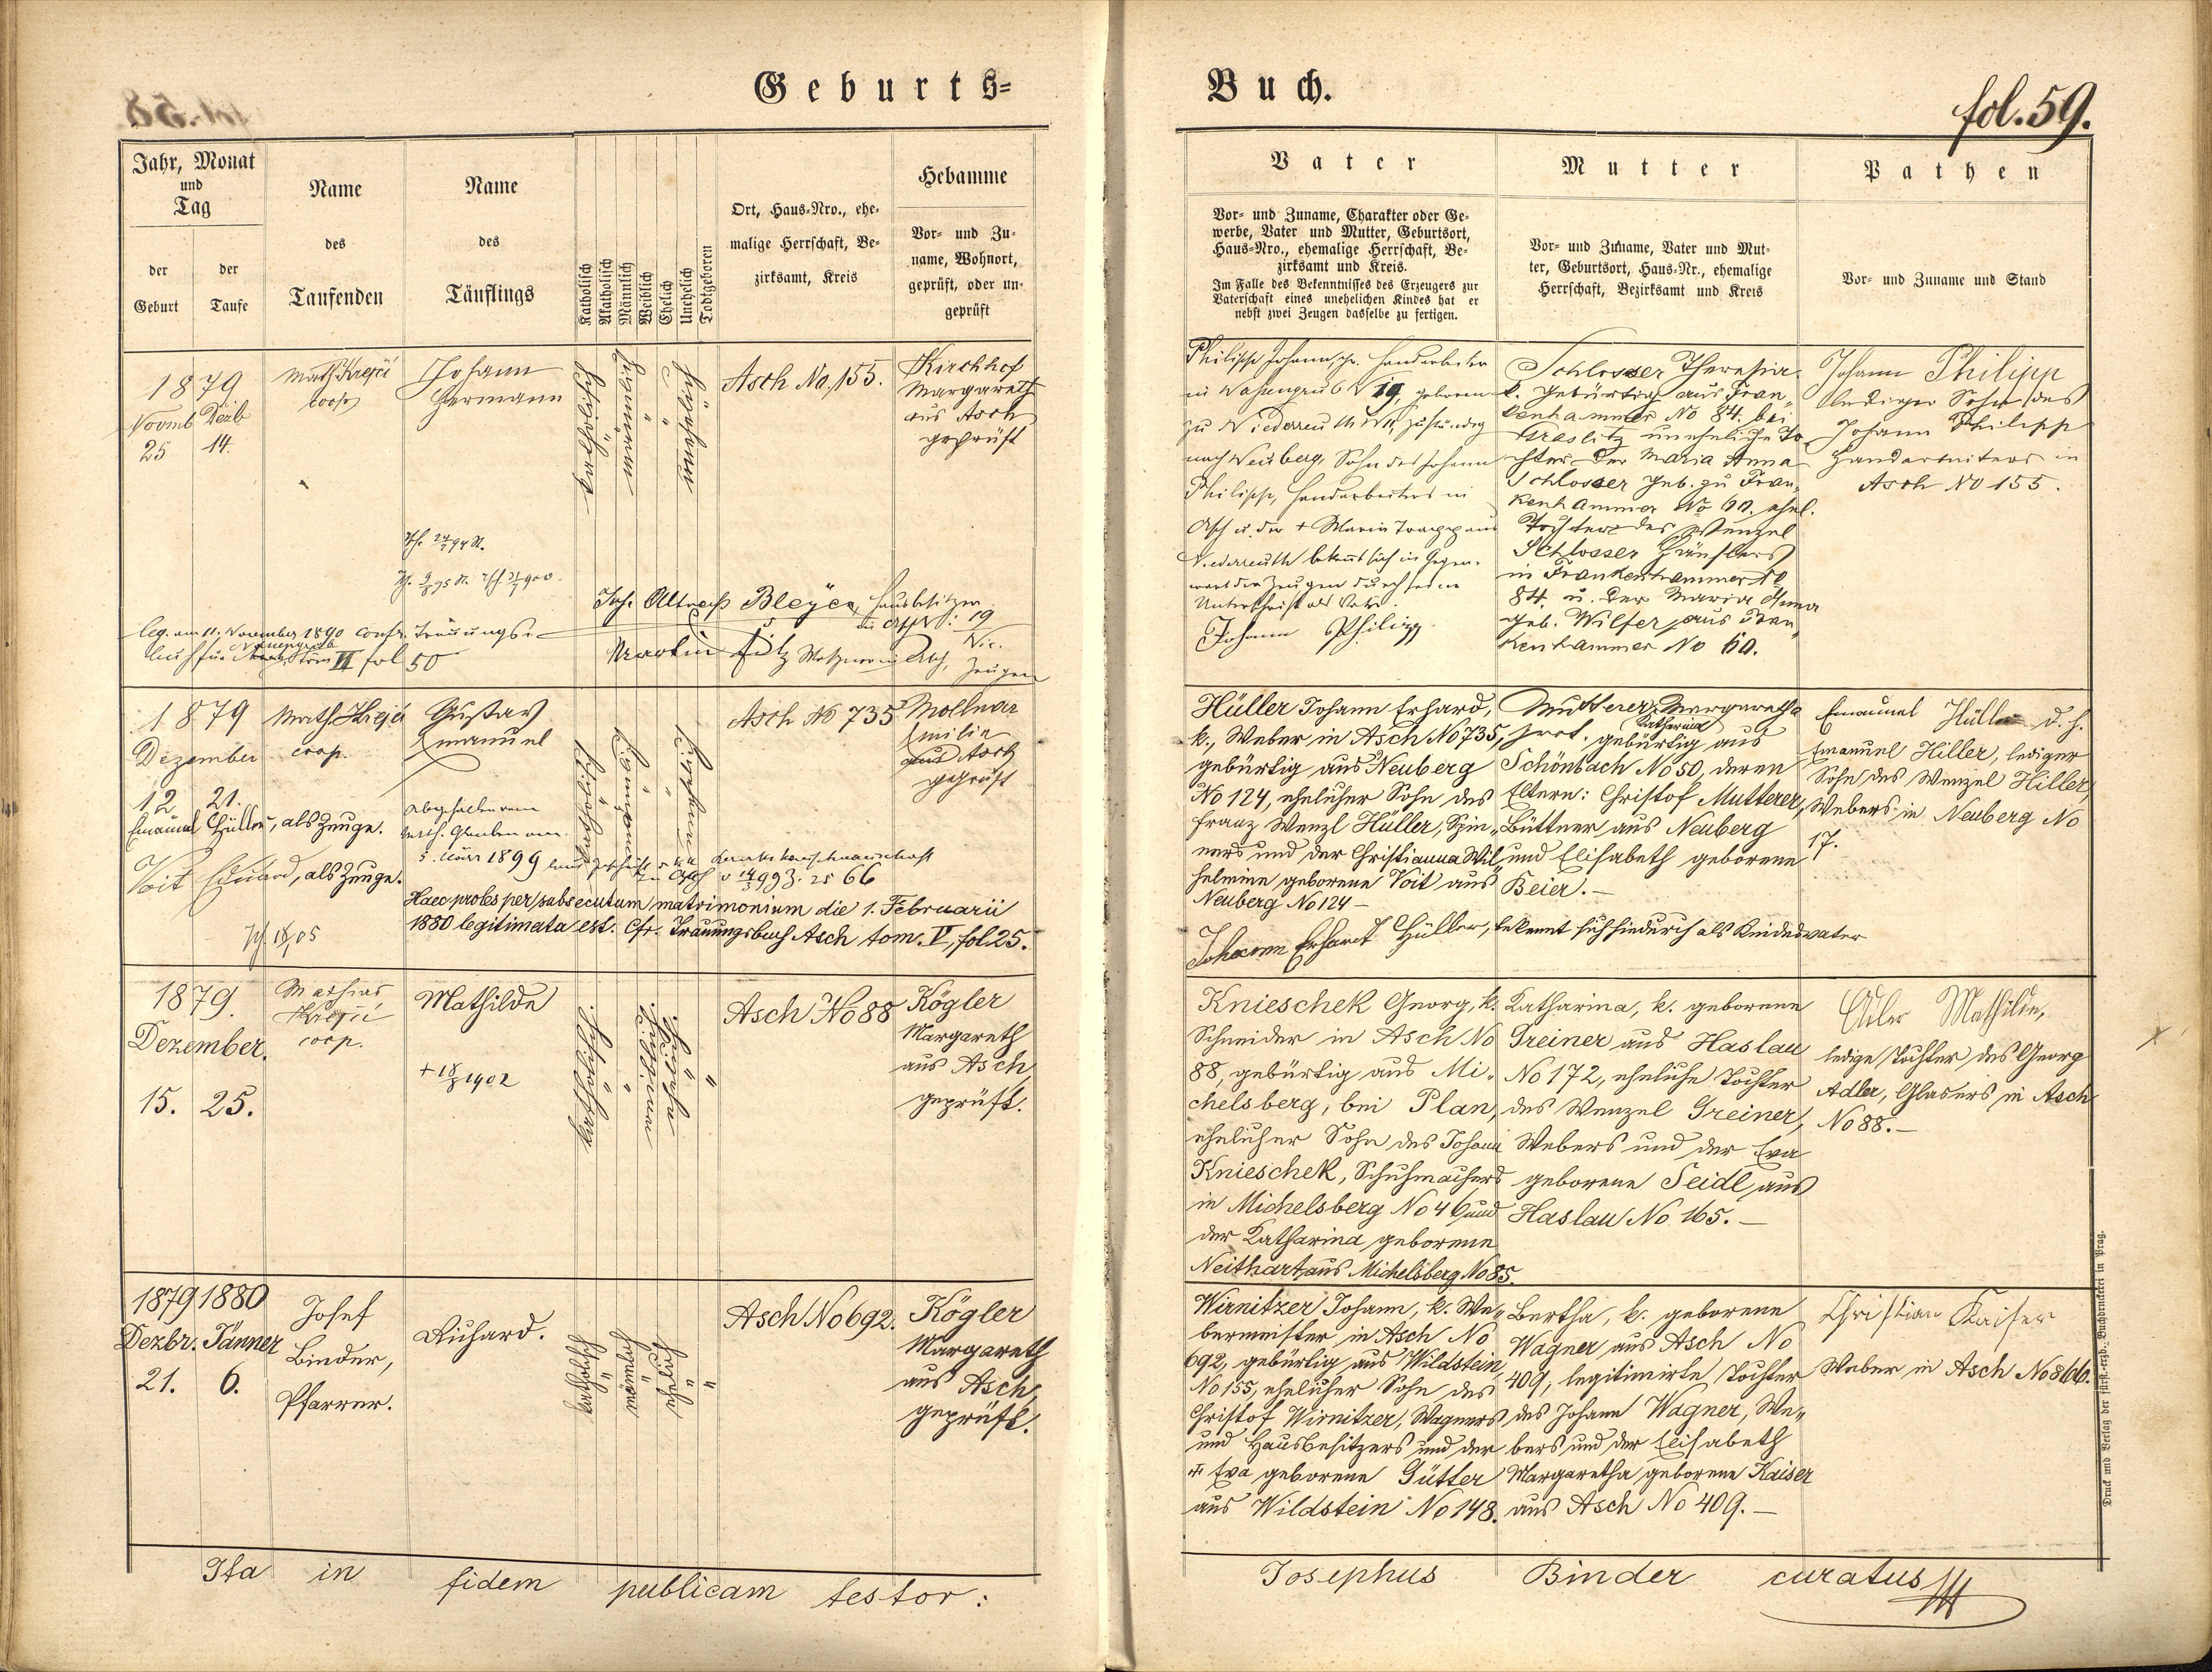 Geburts-
Buch.
fol. 59.
Jahr, Monat
und
Tag
der
Geburt
der
Taufe
Name
des
Taufenden
Name
des
Täuflings
Katholisch
Akatholisch
Männlich
Weiblich
Ehelich
Unehelich
Todtgeboren
Ort, Haus-Nro., ehe-
malige Herrschaft, Be-
zirksamt, Kreis
Hebamme
Vor- und Zu-
name, Wohnort,
geprüft, oder un-
geprüft
Vater
Vor- und Zuname, Charakter oder Ge-
werbe, Vater und Mutter, Geburtsort,
Haus-Nro., ehemalige Herrschaft, Be-
zirksamt und Kreis.
Im Falle des Bekenntnisses des Erzeugers zur
Vaterschaft eines unehelichen Kindes hat er
nebst zwei Zeugen dasselbe zu fertigen.
Mutter
Vor- und Zuname, Vater und Mut-
ter, Geburtsort, Haus-Nr., ehemalige
Herrschaft, Bezirksamt und Kreis
Pathen
Vor- und Zuname und Stand
1879
Novmb Dezb
25 14.
Math. Krejčí
coop
Johann
Hermann
Asch No, 155.
Kirchhof
Margareth
aus Asch
geprüft
Philipp Johann, Handarbeiter
No 19, geboren
zu Niederreuth zuständig
nach Neuberg, Sohn des Johann
Philipp, Handarbeiters in
Asch u. der + Maria aus
Niederreuth bekennt sich in Gegen-
wart der Zeugen durch seine
Unterschrift als Vater.
Johann Philipp
Schlosser Theresia
k. gebürtig aus Fran-
kenhammer No 84. bei
Graslitz uneheliche To-
chter der Maria Anna
Schlosser geb. zu Fran-
kenhammer No 60. ehel.
Tochter des Wenzel
Schlosser Häuslers
in Frankenhammer No
84. u. der Maria Anna
geb. Wilfer aus Fran-
kenhammer No 60.
Johann Philipp
lediger Sohn des
Johann Philipp
Handarbeiters in
Asch No 155.
Bleyer, Hausbesitzer
in Asch N: 19
Martin in Asch, Zeugen
leg. am 11. November 1890 confr. Trauungs-
buch für Tom VI fol 50
1879
Dezember
12 21.
Math. Krejčí
coop.
Gustav
Emanuel
Asch No 735
Mollnar
Emilie
aus Asch
geprüft
Emanuel Hüller, als Zeuge.
Voit Eduard, als Zeuge.
Abgefallen vom
kath. Glauben am
5. März 1899
Haec proles per subsecutum matrimonium die 1. Februarii
1880 legitimata est. Cfr. Trauungsbuch Asch tom. V, fol. 25.
Hüller Johann Erhard,
k., Weber in Asch No 735,
gebürtig aus Neuberg
No 124, ehelicher Sohn des
Franz Wenzl Hüller, Spin-
ners und der Christianna Wil-
helmine geborene Voit aus
Neuberg No 124 —
Johann Erhardt Hüller, bekennt sich hiedurch als Kindesvater
Mutterer, Margaretha
Katharina
prot. gebürtig aus
Schönbach No 50, deren
Eltern: Christof Mutterer,
Büttner aus Neuberg
und Elisabeth geborene
Beier. —
Emanuel Hüller d. h.
Emanuel Hiller, lediger
Sohn des Wenzel Hiller,
Webers in Neuberg No
17.
1879.
Dezember.
15. 25.
Mathias
Krejčí
coop.
Mathilde
+ 18/8 1902
Asch No 88
Kögler
Margareth
aus Asch,
geprüft.
Knieschek Georg, k.
Schneider in Asch No
88, gebürtig aus Mi-
chelsberg, bei Plan,
ehelicher Sohn des Johann
Knieschek, Schuhmachers
in Michelsberg No 46 und
der Katharina geborene
Neithart aus Michelsberg No 85.
Katharina, k. geborene
Greiner aus Haslau
No 172, eheliche Tochter
des Wenzel Greiner,
Webers und der Eva
geborene Seidl aus
Haslau No 165. —
Adler Mathilde,
ledige Tochter des Georg
Adler, Glasers in Asch
No 88. —
1879 1880
Dezbr. Jänner
21. 6.
Josef
Binder,
Pfarrer.
Richard.
Asch No 692.
Kögler
Margareth
aus Asch,
geprüft.
Wirnitzer Johann, k. We-
bermeister in Asch No
692, gebürtig aus Wildstein
No 155, ehelicher Sohn des
Christof Wirnitzer, Wagners
und Hausbesitzers und der
+ Eva geborene Gütter
aus Wildstein No 148.
Bertha, k. geborene
Wagner aus Asch No
409, legitimirte Tochter
des Johann Wagner, We-
bers und der Elisabeth
Margaretha geborene Kaiser
aus Asch No 409. —
Christian Kaiser
Weber in Asch No 866.
Ita in fidem publicam testor:
Josephus Binder curatus
Druck und Verlag der fürst.-erzb. Buchdruckerei in Prag.